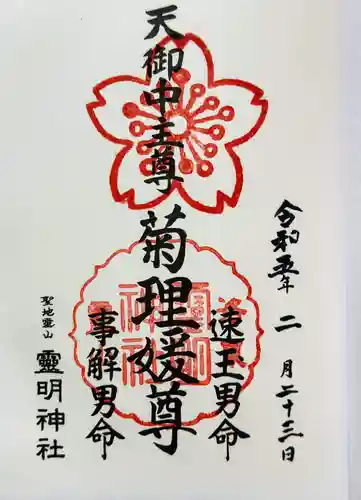 令和五年 二月二十三日
天御中主尊
菊理媛尊
速玉男命
事解男命
聖地霊山
靈明神社